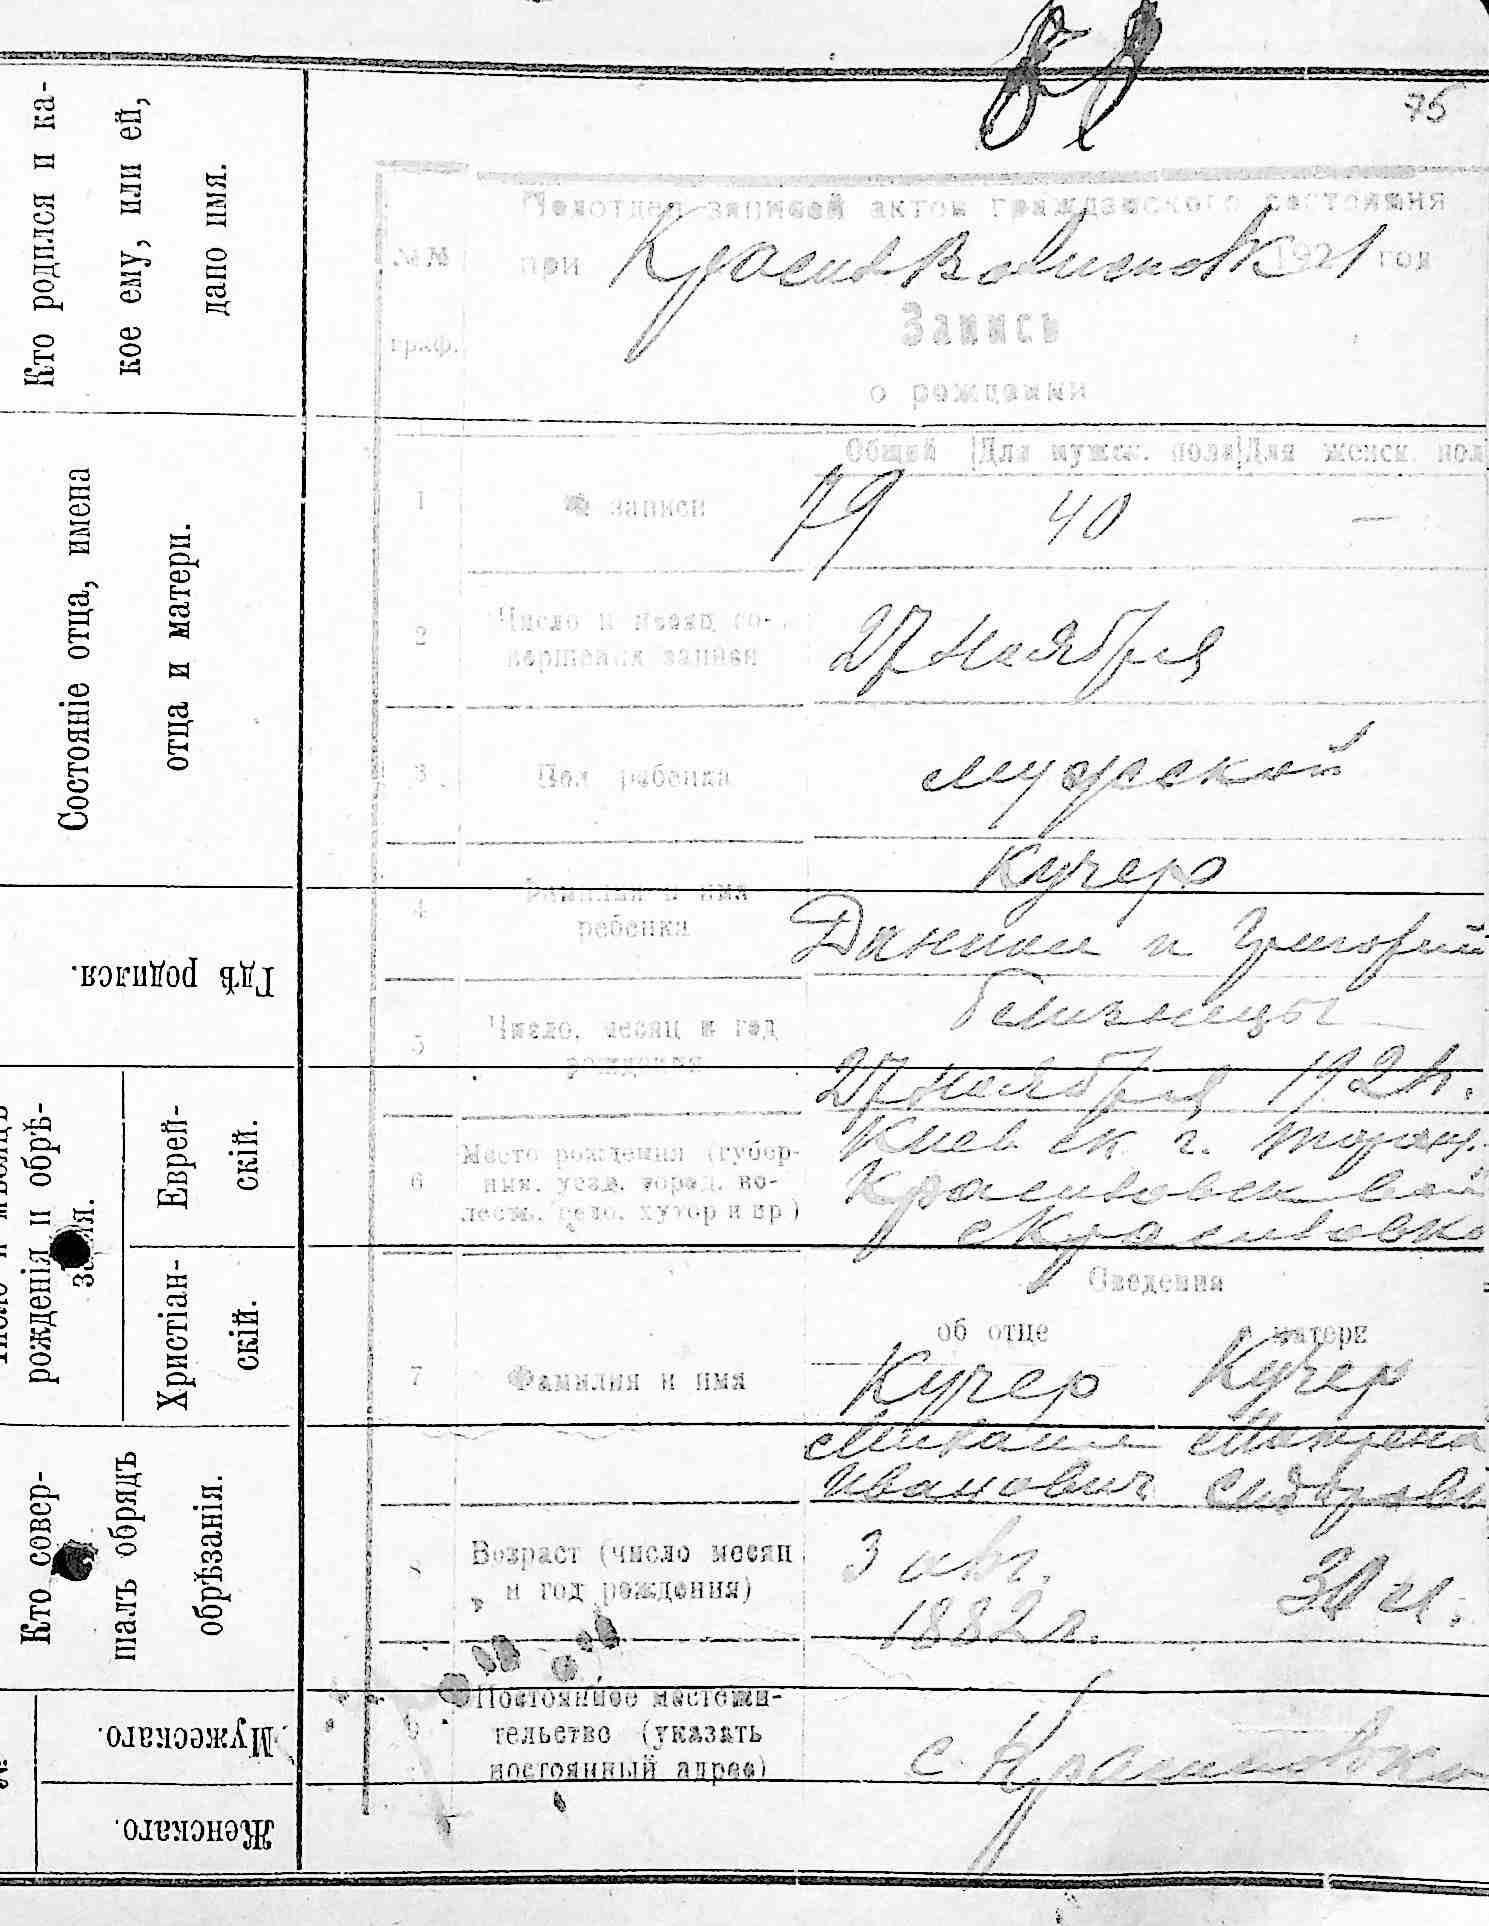 75
Кто родился и ка-
кое ему, или ей,
дано имя.
Состояніе отца, имена
отца и матери.
Гдѣ родился.
рожденія и обрѣ-
Еврей-
скій.
Христіан-
скій.
Кто совер-
шалъ обрядъ
обрѣзанія.
Мужескаго.
Женскаго.
Подотдел записей актов гражданского состояния
№№ при 1921 год
граф. Запись
о рождении
Общий Для мужск. пола Для женск. пол
1 № записи 79 40 —
2 Число и месяц со-
вершения записи 27 Ноября
3 Пол ребенка мужской
Кучер
4 Фамилия и имя
ребенка Даниил и Григорий
близнецы
5 Число, месяц и год
рождения 27 Ноября 1921г.
6 Место рождения (губер-
ния, уезд, город, во-
лость, село, хутор и пр) Киевск. г.
Сведения
об отце о матери
7 Фамилия и имя Кучер Кучер
Михаил Матрена
Иванович
8 Возраст (число месяц
и год рождения) 3 авг. 30 л.
1882 г.
9 Постоянное местожи-
тельство (указать
постоянный адрес) с.